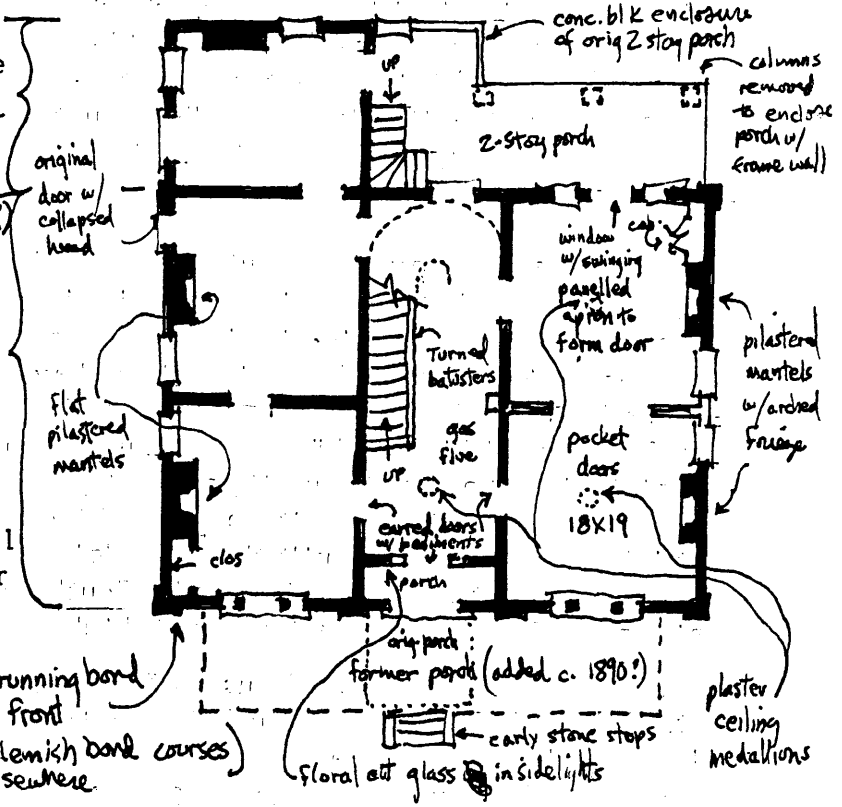 conc. blk enclosure
of orig 2 stoy porch
columns
removed
to enclose
porch w/
frame wall
UP
2-stoy porch
original
door w/
collapsed
head
cab.
window
w/swinging
panelled
apron to
form door
Turned
balisters
pilastered
mantels
w/arched
frieze
flat
pilastered
mantels
gas
flue
UP
pocket
doors
18X19
doors
w/
clos
porch
orig porch
former porch (added c. 1890?)
running bond
front
lemish bond courses
sewhere
early stone stops
floral cut glass in sidelights
plaster
ceiling
medallions